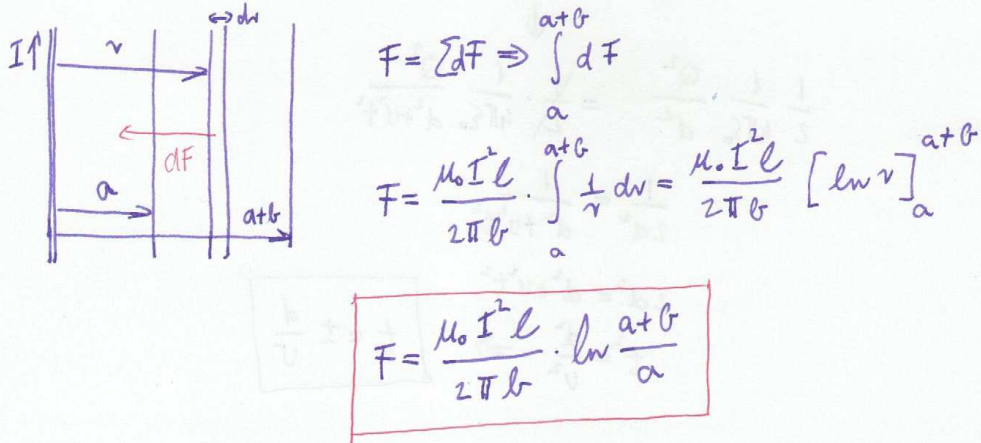 I↑ r ↔dr
dF
a
a+b
F = ∑dF ⇒ ∫_a^{a+b} dF
F = \frac{μ₀ I² l}{2πb} · ∫_a^{a+b} \frac{1}{r} dr = \frac{μ₀ I² l}{2πb} [ln r]_a^{a+b}
F = \frac{μ₀ I² l}{2πb} · ln \frac{a+b}{a}